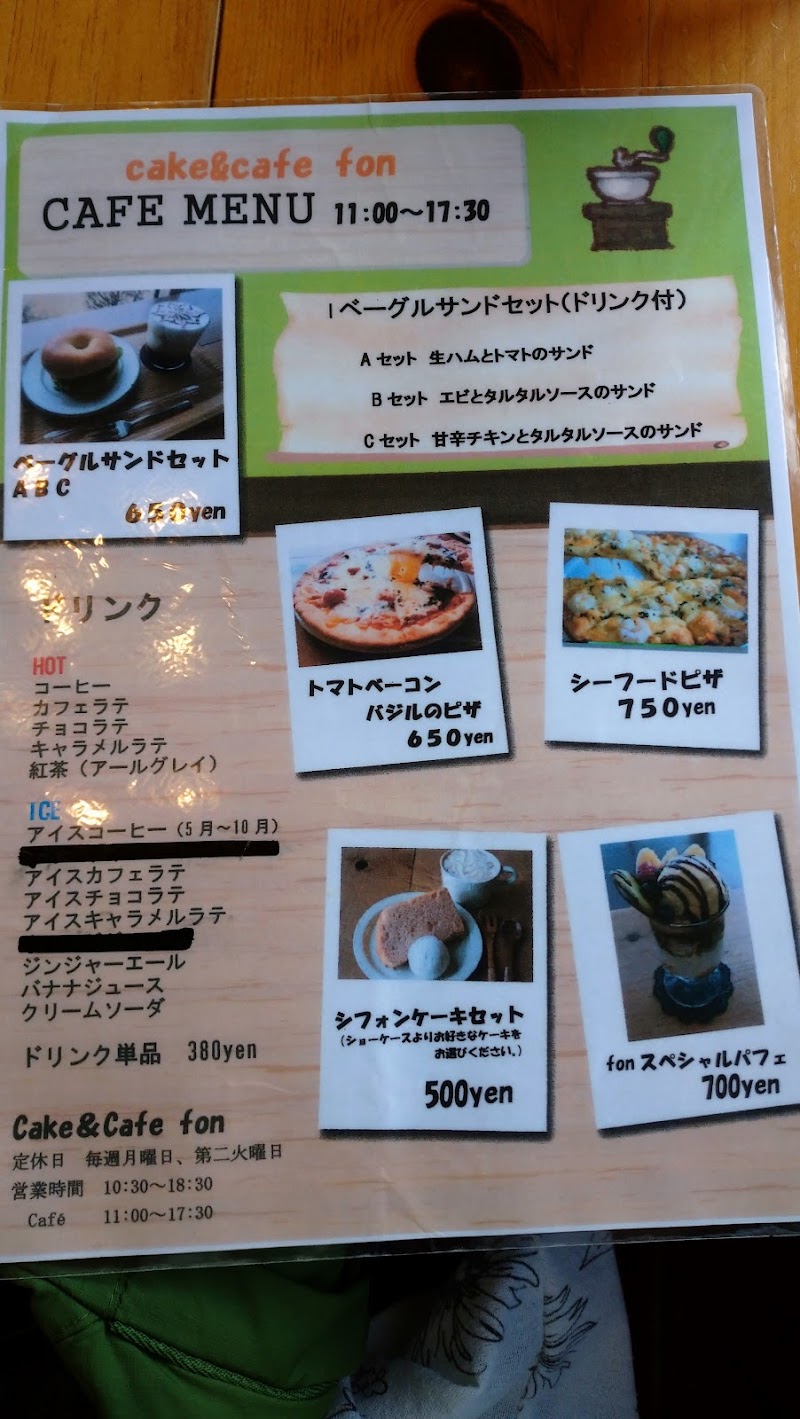 cake&cafe fon
CAFE MENU 11:00～17:30
ベーグルサンドセット(ドリンク付)
Aセット 生ハムとトマトのサンド
Bセット エビとタルタルソースのサンド
Cセット 甘辛チキンとタルタルソースのサンド
ベーグルサンドセット
ABC
650yen
トマトベーコン
バジルのピザ
650yen
シーフードピザ
750yen
ドリンク
HOT
コーヒー
カフェラテ
チョコラテ
キャラメルラテ
紅茶（アールグレイ）
ICE
アイスコーヒー（5月～10月）
アイスカフェラテ
アイスチョコラテ
アイスキャラメルラテ
ジンジャーエール
バナナジュース
クリームソーダ
ドリンク単品 380yen
シフォンケーキセット
(ショーケースよりお好きなケーキを
お選びください。)
500yen
fonスペシャルパフェ
700yen
Cake&Cafe fon
定休日 毎週月曜日、第二火曜日
営業時間 10:30～18:30
Café 11:00～17:30